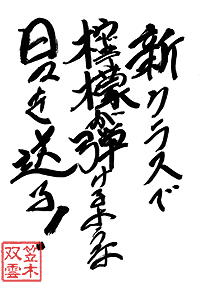 新クラスで
檸檬が弾けるような
日々を送る!
笠木
双雲